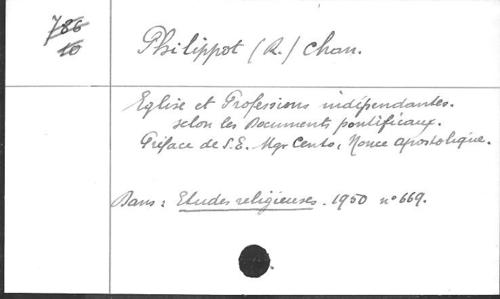 786
10
Philippot (R.) chan.
Eglise et Professions indépendantes.
selon les Documents pontificaux.
Préface de S.E. Mgr Cento, Nonce apostolique.
Dans : Etudes religieuses. 1950 n° 669.